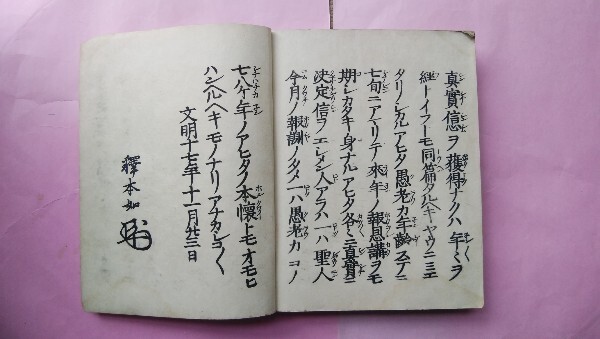 真實信ヲ獲得ナクハ年ミヲ
經トイフトモ同篇タルヘキヤウニミエ
タリシカルアヒタ愚老カ年齡ステニ
七旬ニアマリテ來年ノ報恩講ヲモ
期シカタキ身ナルアヒタ各ミニ真實ニ
決定信ヲエシメン人アラハ一ハ聖人
今月ノ報謝ノタメ一ハ愚老カコノ
七八ケ年ノアヒタノ本懷トモオモヒ
ハンヘルヘキモノナリアナカシコく
文明十七年十一月廿三日
釋本如